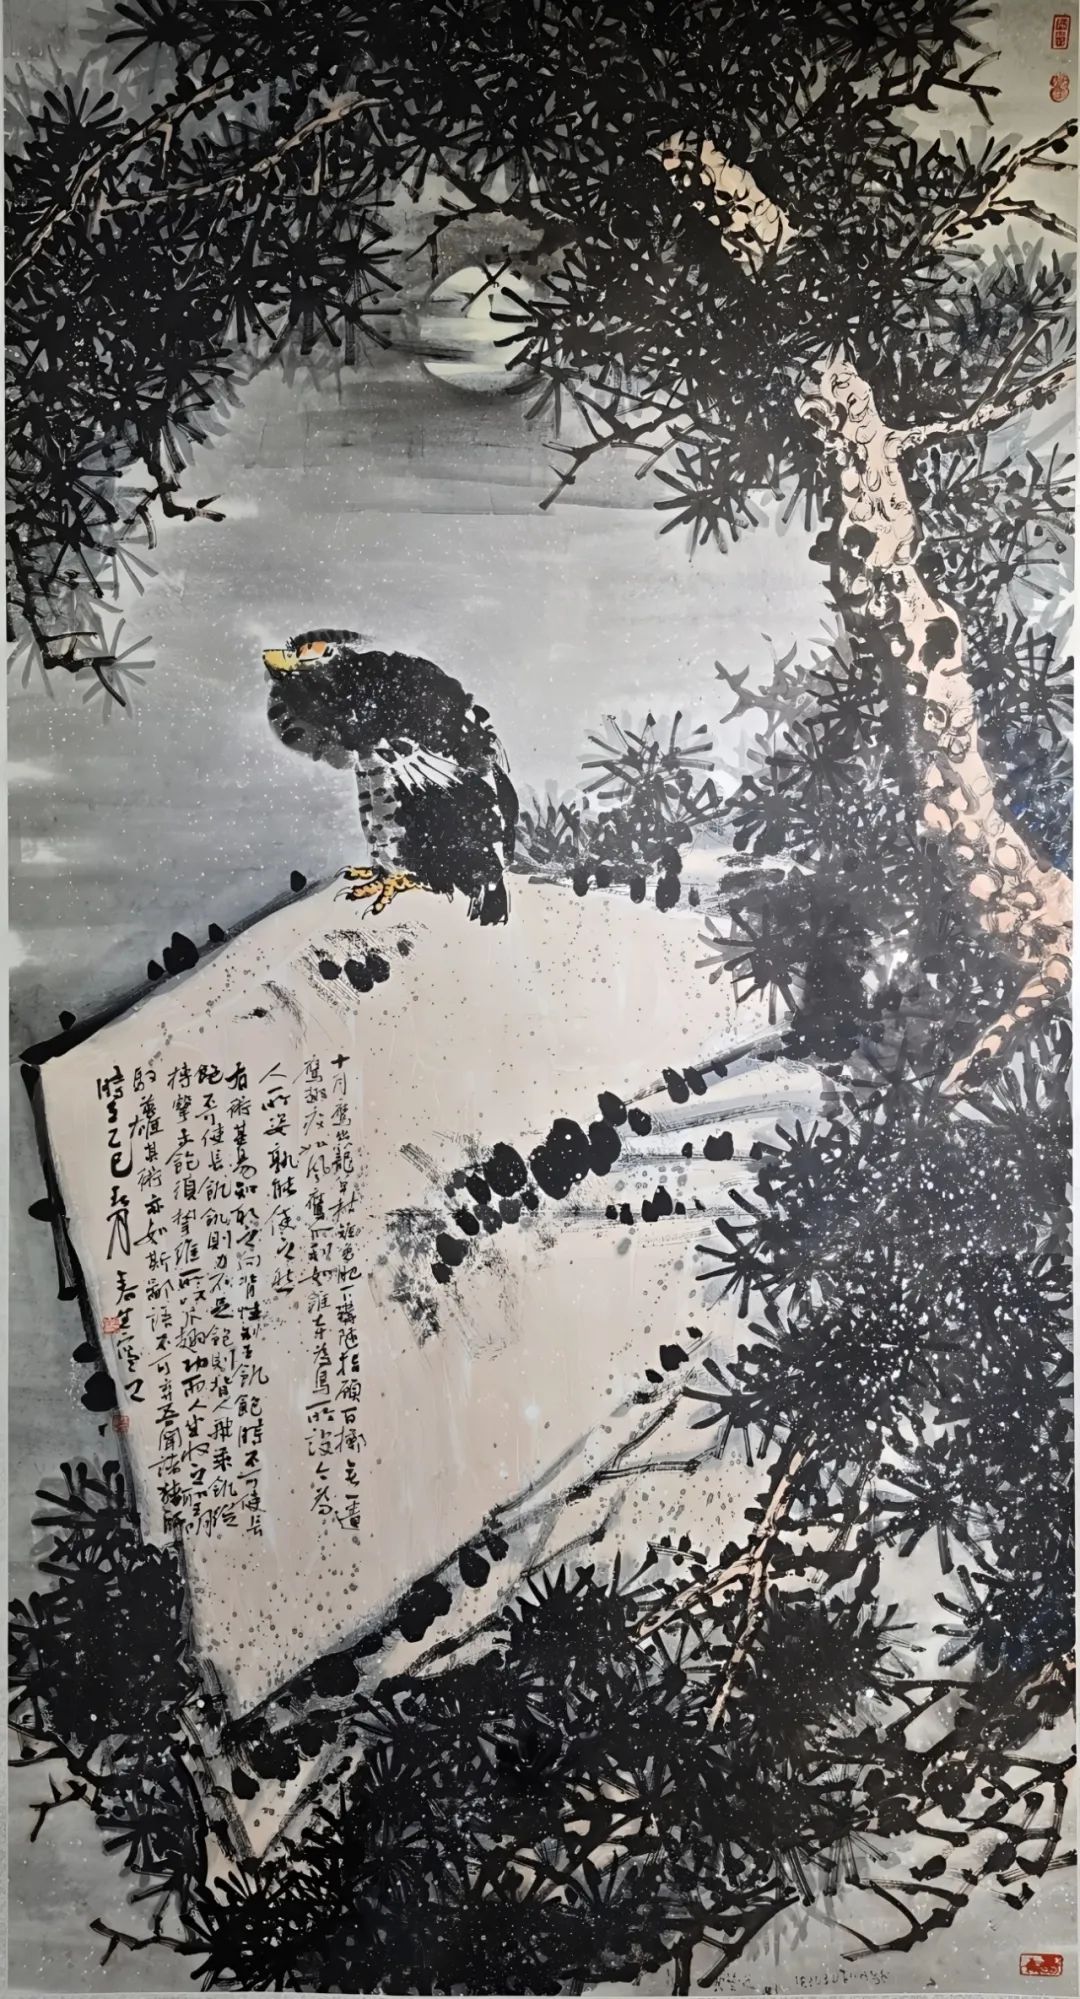 十月鷹出籠草枯雉兔肥下鞲隨指顧百擲無一遺
鷹翅疾如風鷹爪利如錐本為鳥所設今為
人所姿孰能使之然
有術甚易知取之向背性制在飢飽時不可使長
飽不可使長飢飢則力不足飽則背人飛乘飢縱
搏擊未飽須縶維所以爪翅功而人坐收之聖明
馭英雄其術亦如斯鄙語不可弃吾聞諸猎師
時在乙巳 月春生寫之